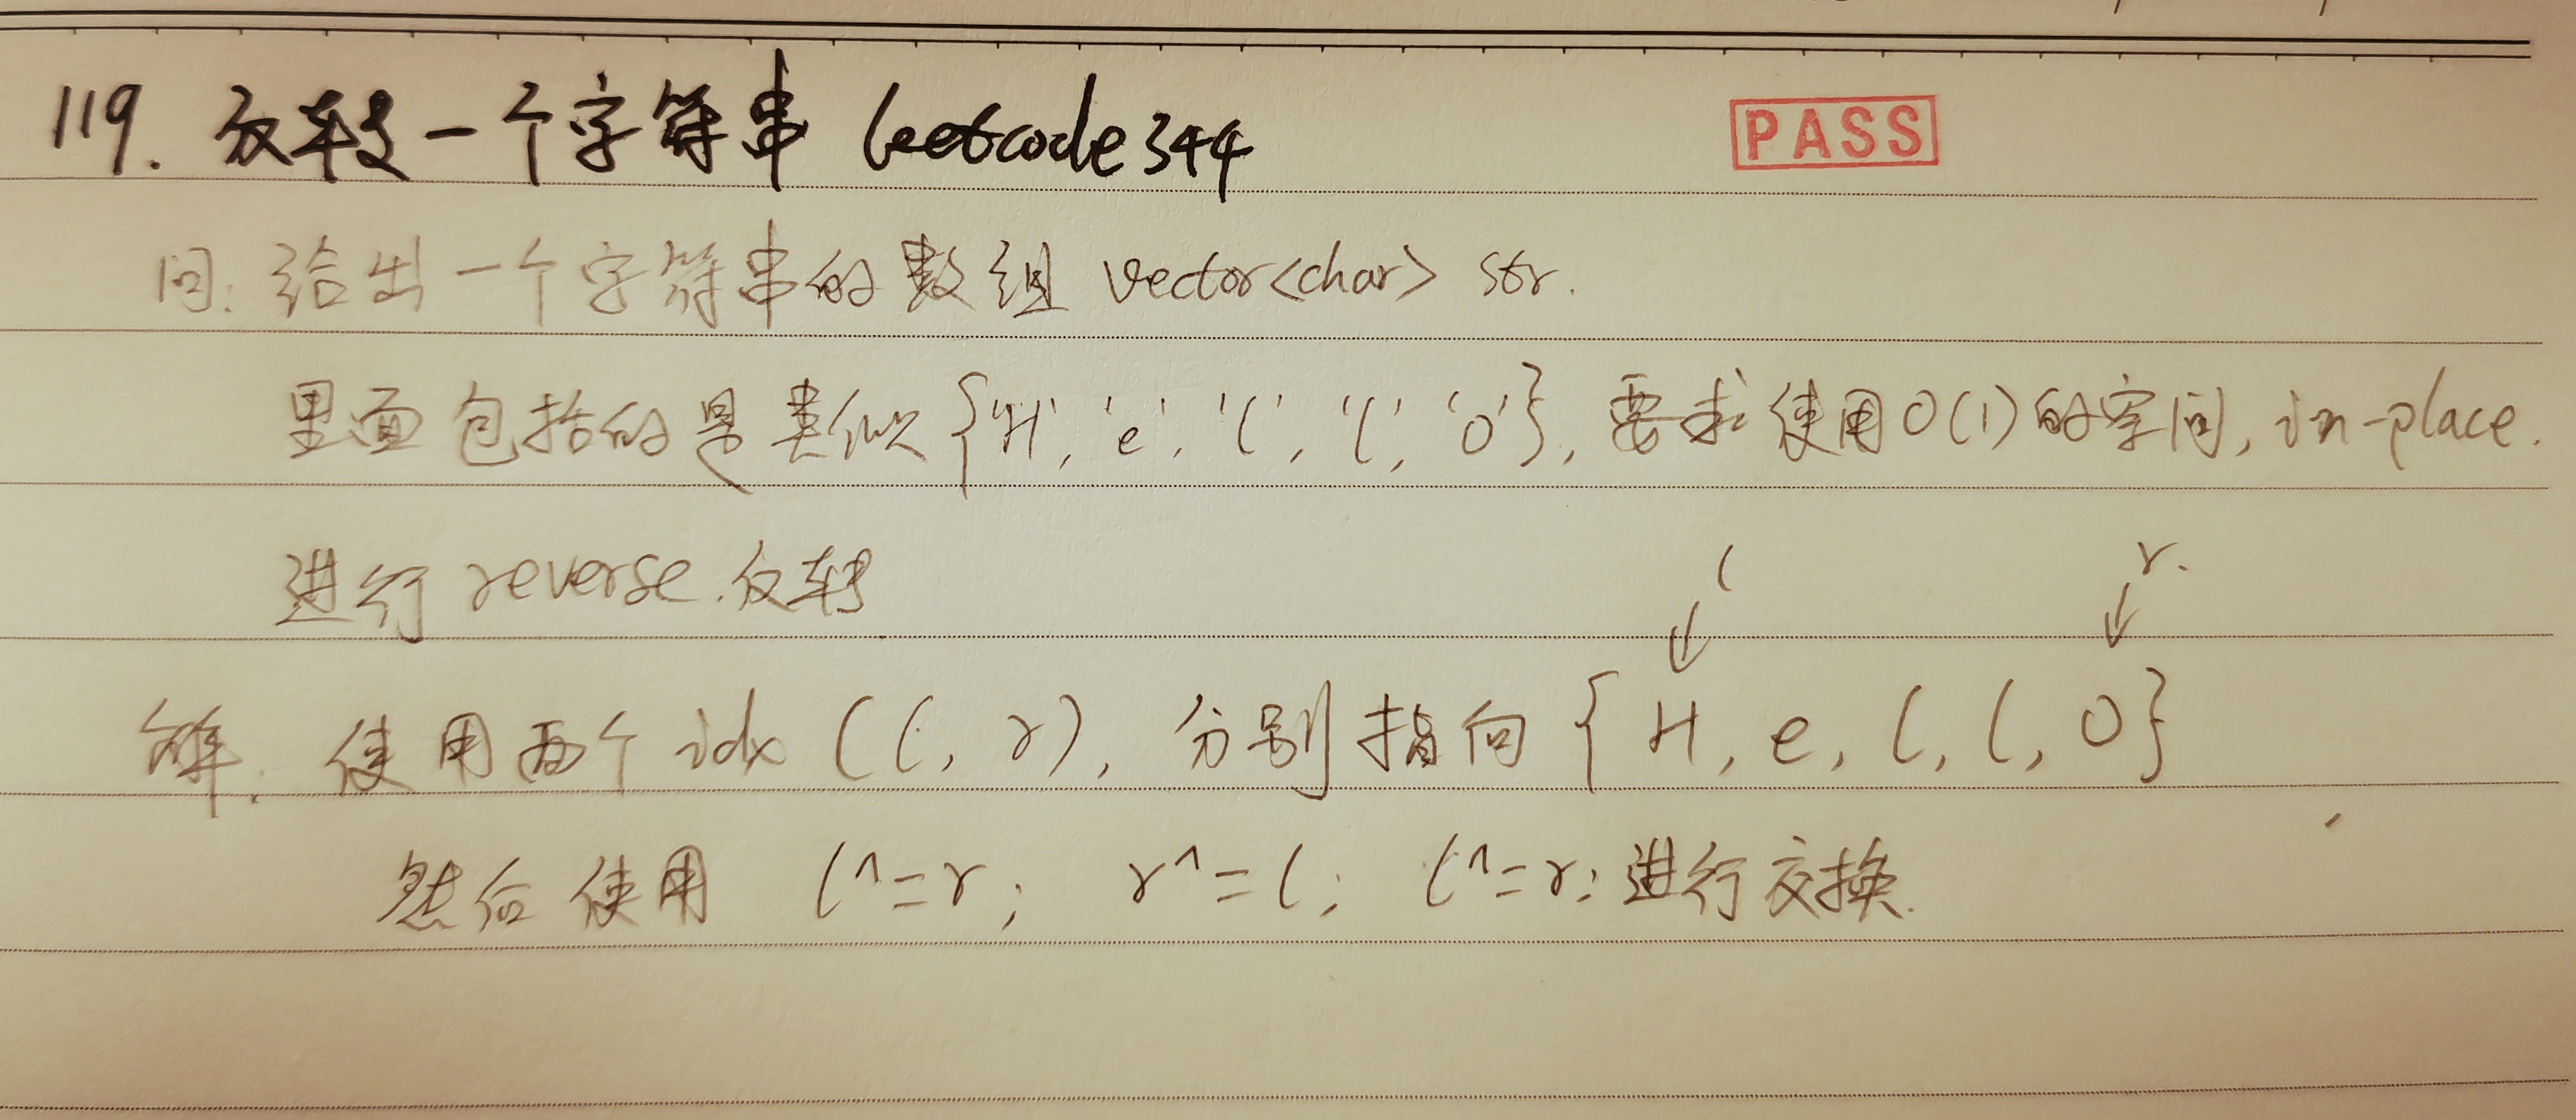 119. 反转一个字符串 leetcode 344 PASS
问: 给出一个字符串的数组 vector<char> str.
里面包括的是类似{'H', 'e', 'l', 'l', 'o'}, 要求使用O(1)的空间, in-place.
进行 reverse.反转
l r.
解. 使用两个 idx (l, r), 分别指向 { H, e, l, l, o}
然后使用 l^=r; r^=l; l^=r; 进行交换.